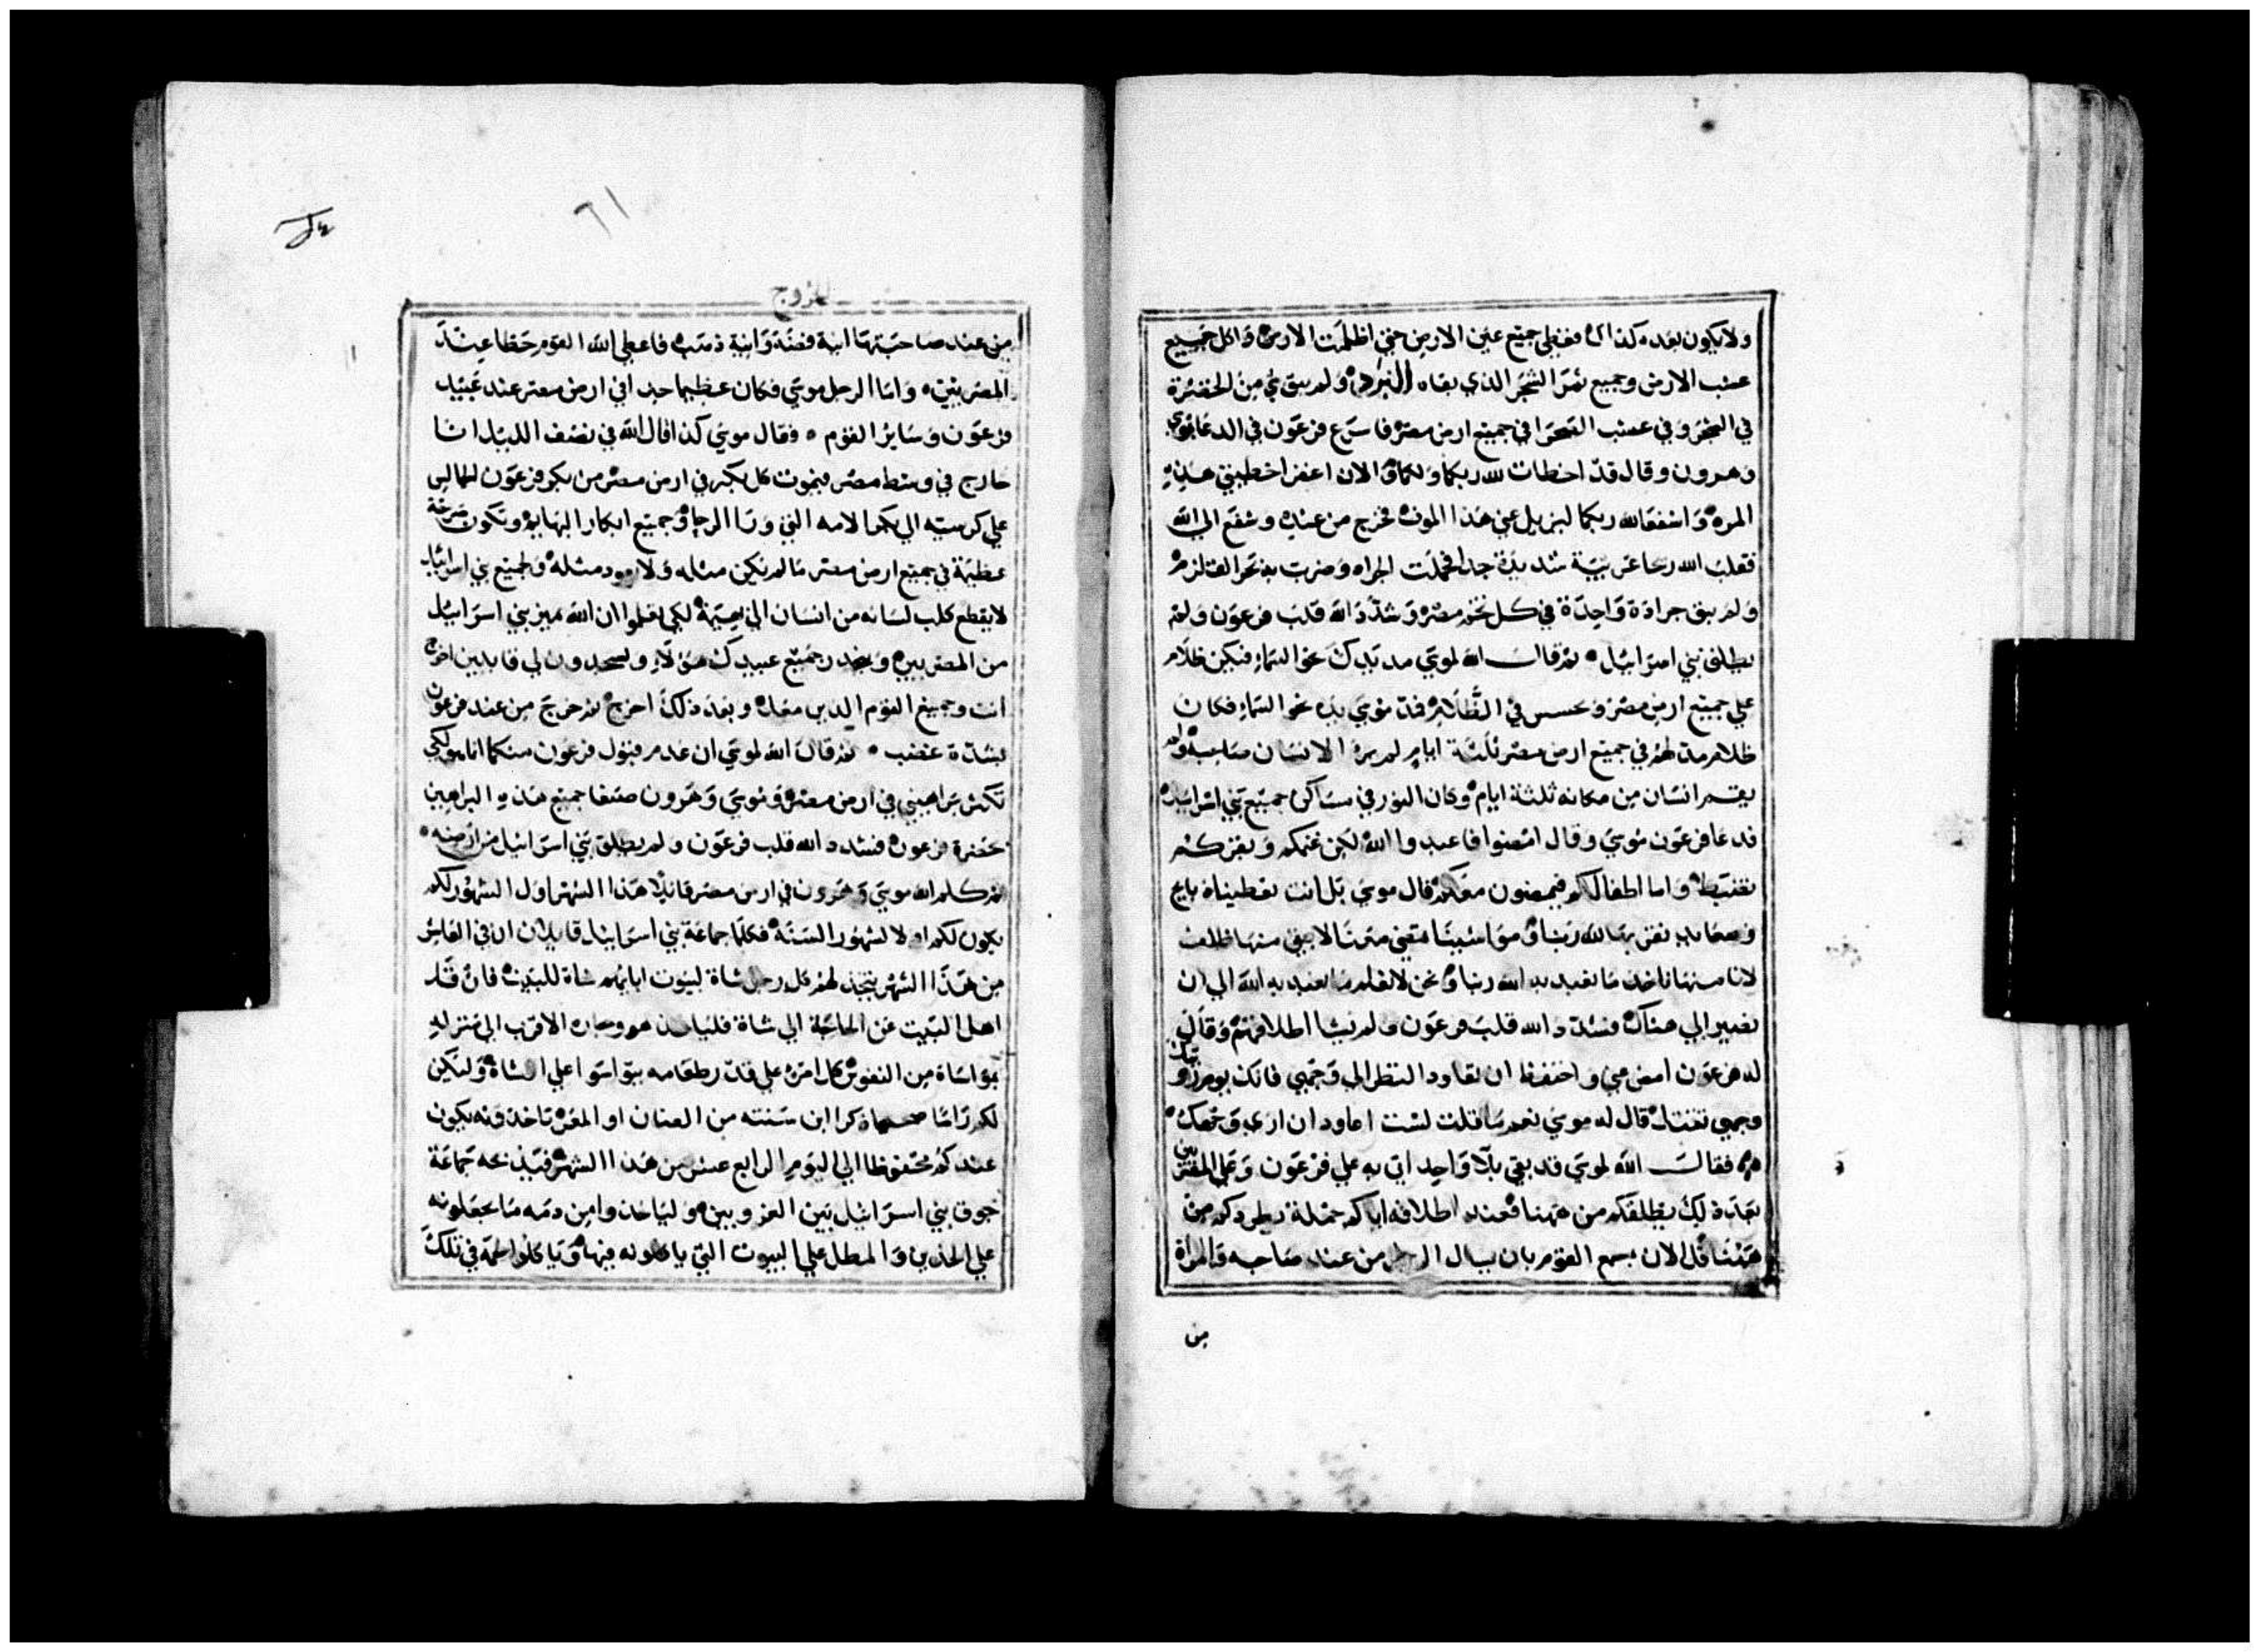 ولا يكون بعده كذلك فغطي جميع عين الارض حتي اظلمت الارض واكل جميع
عشب الارض وجميع ثمر الشجر الذي بقاه البرد ولم يبق شي من الخضرة
في الشجر وفي عشب الصحرا في جميع ارض مصر فاسرع فرعون في الدعا بموسي
وهرون وقال قد اخطات لله ربكما ولكما والان اغفرا خطيتي هذه
المره واشفعا لله ربكما ليزيل عني هذا الموت فخرج من عنده وشفع الي الله
فقلب الله ريحا غربية شديدة جدا فحملت الجراد وضربت به بحر القلزم
ولم يبق جرادة واحدة في كل تخم مصر وشدد الله قلب فرعون ولم
يطلق بني اسرائيل ثم قال الله لموسي مد يدك نحو السماء فيكن ظلام
علي جميع ارض مصر وبحسس في الظلام فمد موسي يده نحو السماء فكان
ظلام مدلهم في جميع ارض مصر ثلثة ايام لم ير الانسان صاحبه ولم
يقم انسان من مكانه ثلثة ايام وكان النور في مساكن جميع بني اسرائيل
فدعا فرعون موسي وقال امضوا فاعبدوا الله لكن غنمكم وبقركم
تضبط واما اطفالكم فيمضون معكم قال موسي بل انت تعطينا ذبايح
وصعايد نقربها لله ربنا ومواشينا تمضي معنا لا يبقي منها ظلف
لانا منها ناخذ ما نعبد به الله ربنا ونحن لا نعلم ما نعبد به الله الي ان
نصير الي هناك فشدد الله قلب فرعون ولم يشا اطلاقهم وقال
له فرعون امض عني واحتفظ ان تعاود النظر الي وجهي فانك يوم رويتك
وجهي تقتل قال له موسي نعم ما قلت لست اعاود ان اري وجهك
فقال الله لموسي قد بقي بلا واحد اتي به علي فرعون وعلي المصريين
بعد ذلك يطلقكم من ههنا فعند اطلاقه اياكم جملة يطردكم من
ههنا قل الان بسمع القوم بان يسال الرجل من عند صاحبه والمراة
من
الخروج
٦١
من عند صاحبتها انية فضة وانية ذهب فاعطي الله القوم حظا عند
المصريين واما الرجل موسي فكان عظيما جدا في ارض مصر عند عبيد
فرعون وساير القوم فقال موسي كذا قال الله في نصف الليل انا
خارج في وسط مصر فيموت كل بكر في ارض مصر من بكر فرعون الجالس
علي كرسيه الي بكر الامه التي ورا الرحا وجميع ابكار البهايم وتكون صرخة
عظيمة في جميع ارض مصر ما لم يكن مثله ولا يعود مثله ولجميع بني اسرائيل
لا يقطع كلب لسانه من انسان الي بهيمة لكي تعلموا ان الله يميز بني اسرائيل
من المصريين وينحدر جميع عبيدك هولاء ويسجدون لي قايلين اخرج
انت وجميع القوم الدين معك وبعد ذلك اخرج ثم خرج من عند فرعون
بشدة غضب ثم قال الله لموسي ان عدم قبول فرعون منكما انما هو لكي
تكثر براهيني في ارض مصر وموسي وهرون صنعا جميع هذه البراهين
بحضرة فرعون فشدد الله قلب فرعون ولم يطلق بني اسرائيل من ارضه
ثم كلم الله موسي وهرون في ارض مصر قائلا هذا الشهر اول الشهور لكم
يكون لكم اولا لشهور السنة فكلما جماعة بني اسرائيل قايلان ان في العاشر
من هذا الشهر يتخذ لهم كل رجل شاة لبيوت ابايهم شاة للبيت فان قل
اهل البيت عن الحاجة الي شاة فلياخذ هو وجاره الاقرب الي منزله
بمواساة من النفوس كل امرء علي قدر طعامه يتواسوا علي الشاة ولتكن
لكم راسا صحيحا ذكرا ابن سنته من الضان او المعز تاخذونه يكون
عندكم محتفوظا الي اليوم الرابع عشر من هذا الشهر فيذبحه جماعة
جوق بني اسرائيل بين الغروبين ولياخذوا من دمه ما يجعلونه
علي الخدين والمطل علي البيوت التي ياكلونه فيها وياكلوا لحمه في تلك